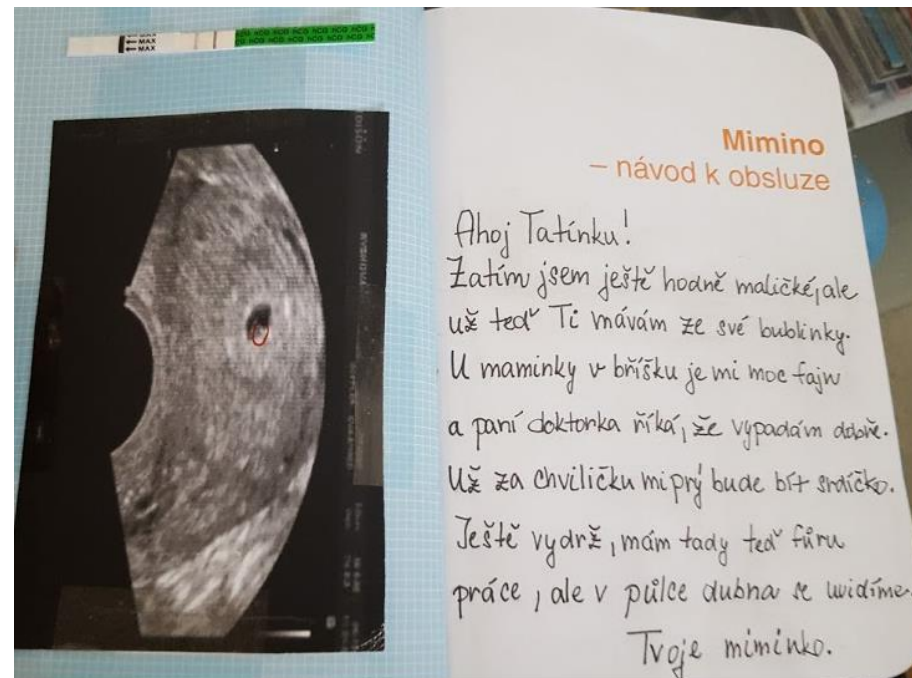 ← MAX
← MAX
hCG hCG hCG hCG hCG hCG hCG
Mimino
– návod k obsluze
Ahoj Tatínku!
Zatím jsem ještě hodně maličké, ale
už teď Ti mávám ze své bublinky.
U maminky v bříšku je mi moc fajn
a paní doktorka říká, že vypadám dobře.
Už za chviličku mi prý bude bít srdíčko.
Ještě vydrž, mám tady teď fůru
práce, ale v půlce dubna se uvidíme.
Tvoje miminko.